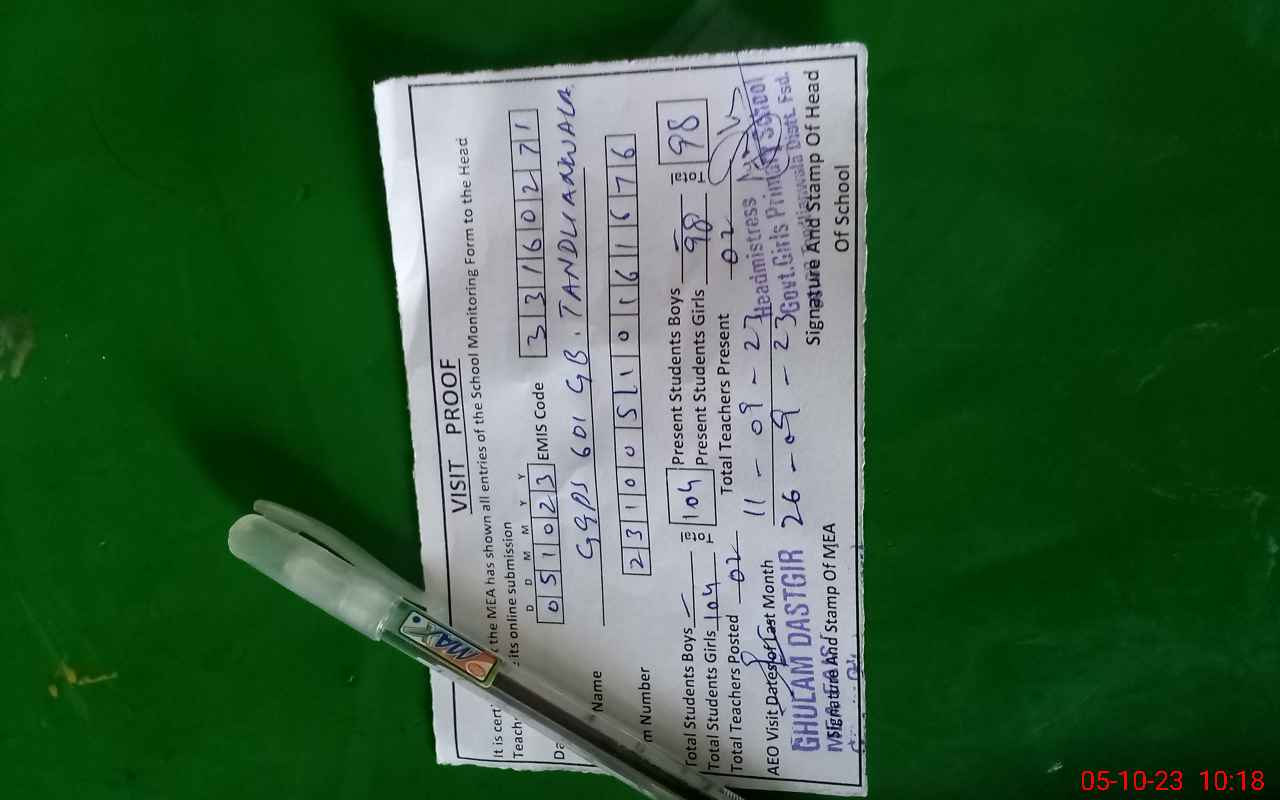 VISIT PROOF
It is cert the MEA has shown all entries of the School Monitoring Form to the Head
Teach its online submission
D D M M Y Y
Da 051023 EMIS Code 33160271
Name GGPS 601 GB. TANDLIANWALA
m Number 2310051016 1676
Total Students Boys — Total 104 Present Students Boys — Total 98
Total Students Girls 104 Present Students Girls 98
Total Teachers Posted 02 Total Teachers Present 02
AEO Visit Dates of Last Month 11-09-23
26-09-23
GHULAM DASTGIR
Signature And Stamp Of MEA
Headmistress
Govt. Girls Primary School
Tandlianwala Distt. Fsd.
Signature And Stamp Of Head
Of School
MAX
05-10-23 10:18